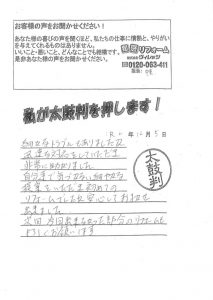 お客様の声をお聞かせください!
あなた様の喜びの声を聞くほど、私たちの仕事に情熱と、やりがい
を与えてくれるものはありません。
いいこと・悪いこと、どんなことでも結構です。
是非あなた様の声をお聞かせください。
リフォーム
0120-063-411
私が太鼓判を押します!
月5日
太鼓判
細かなトラブルもありましたが
非常に助かりました
自分達で気づかない細やかな
提案をいただき初めての
リフォームでしたが安心してお任せ
出来ました
次回 今回出来なかった部分のリフォームも
よろしくお願いします